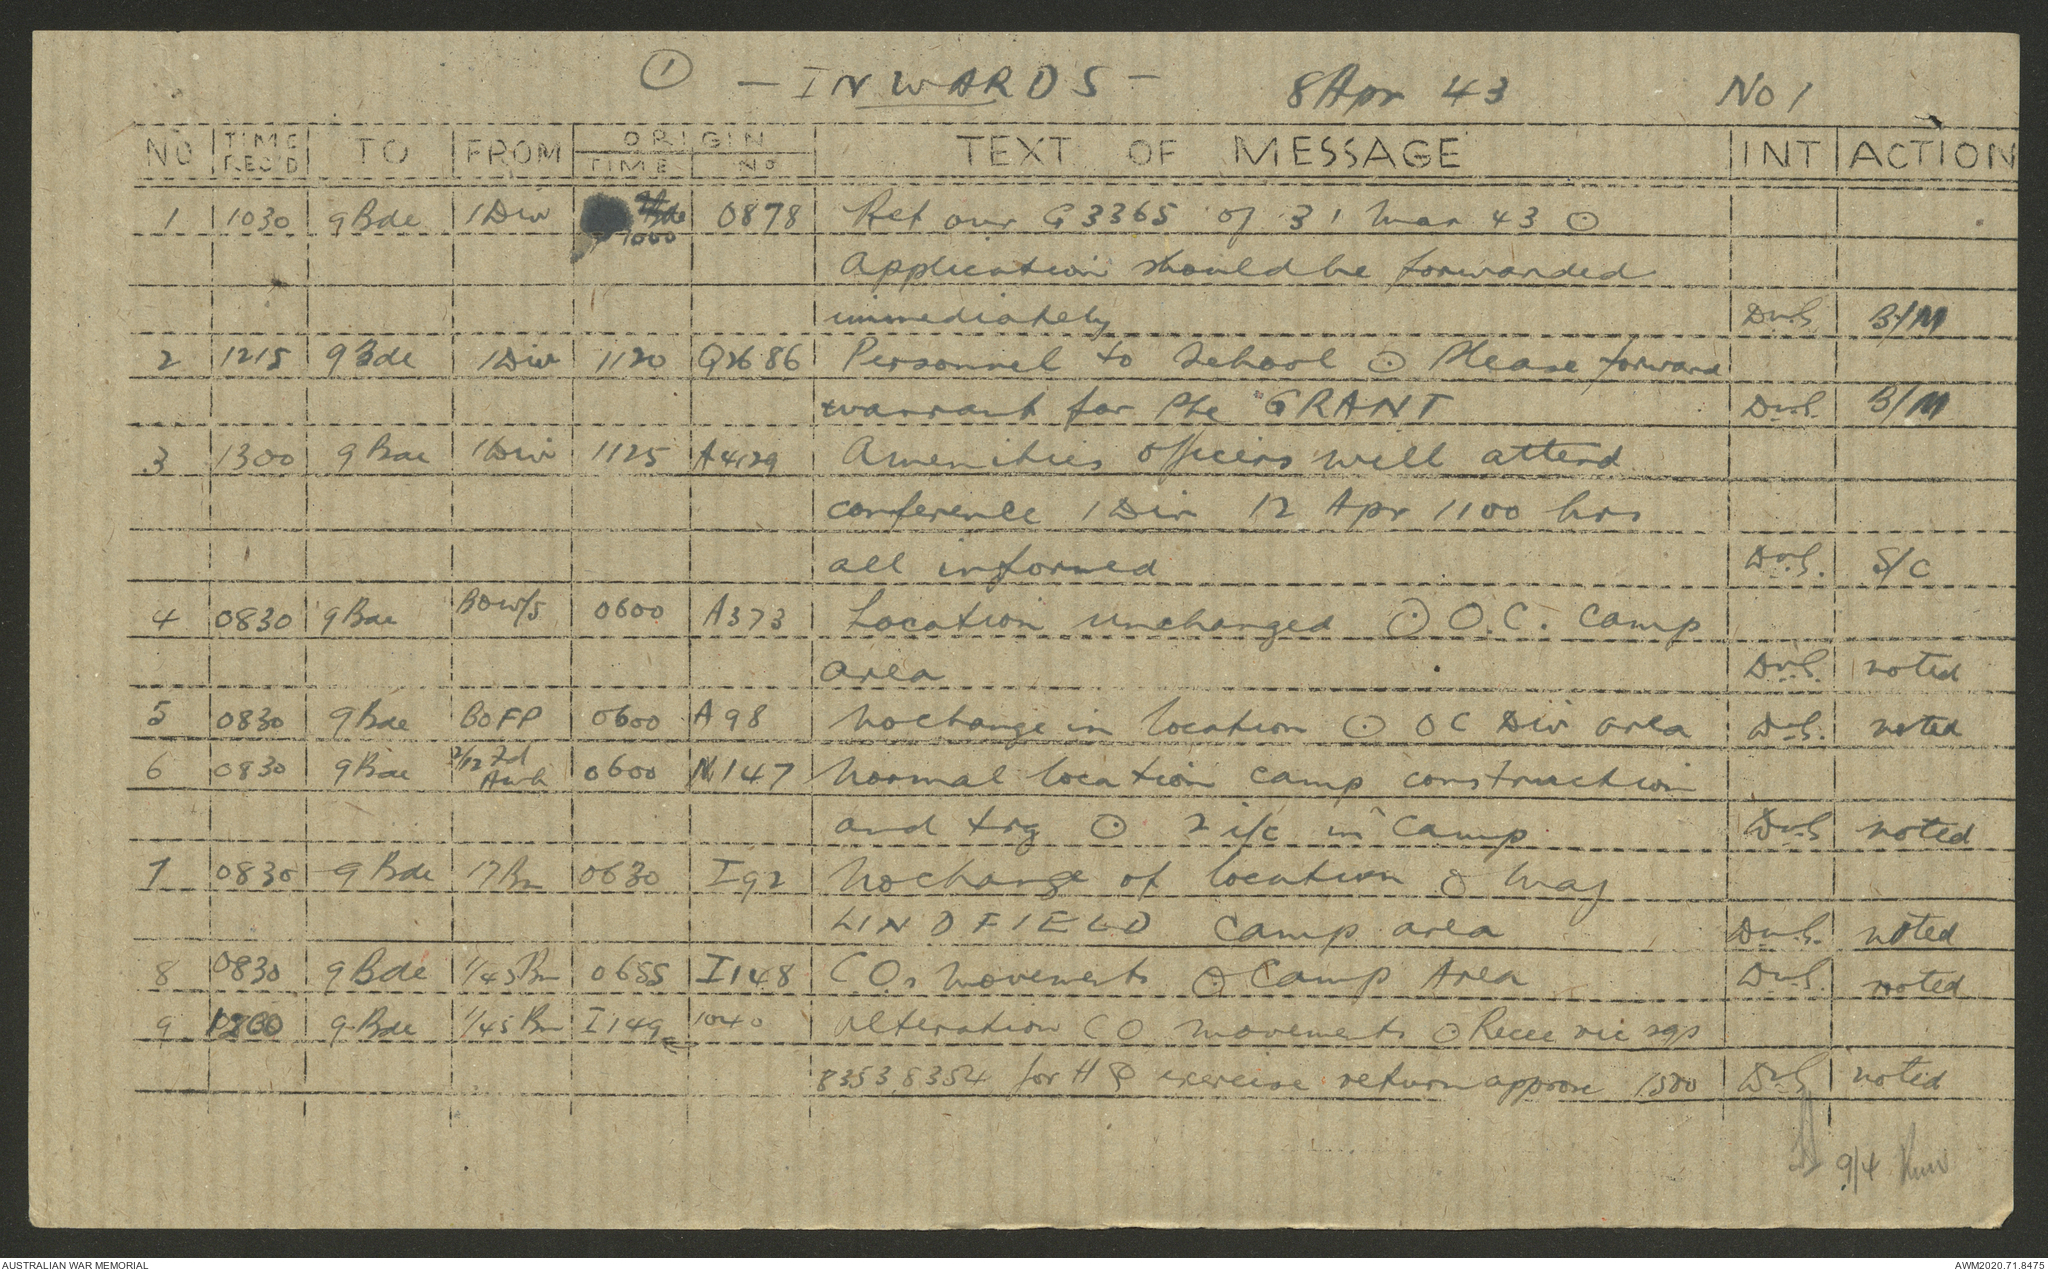 ① - INWARDS - 8 Apr 43 No 1
NO TIME REC'D TO FROM ORIGIN TIME NO TEXT OF MESSAGE INT ACTION
1 1030 9 Bde 1 Div 1000 0878 Ref our G3365 of 31 Mar 43 ⊙
Application should be forwarded
immediately DvS B/M
2 1215 9 Bde 1 Div 1120 Q2686 Personnel to School ⊙ Please forward
warrant for Pte GRANT DvS. B/M
3 1300 9 Bde 1 Div 1125 A4129 Amenities officers will attend
conference 1 Div 12 Apr 1100 hrs
all informed DvS. S/C
4 0830 9 Bde BOW/S 0600 A373 Location unchanged ⊙ O.C. Camp
area DvS. noted
5 0830 9 Bde BOFP 0600 A98 No change in location ⊙ OC Div area DvS. noted
6 0830 9 Bde 2/12 Fd Amb 0600 N147 Normal location camp construction
and trg ⊙ 2 i/c in camp DvS noted
7 0830 9 Bde 17 Bn 0630 I92 No change of location ⊙ Maj
LINDFIELD Camp area DvS. noted
8 0830 9 Bde 1/45 Bn 0655 I148 COs movements ⊙ Camp Area DvS. noted
9 1200 9 Bde 1/45 Bn I149 1040 alteration CO movements ⊙ Recce vic sqs
8353, 8354 for HQ exercise return approx 1500 DvS noted
9/4
AUSTRALIAN WAR MEMORIAL AWM2020.71.8475